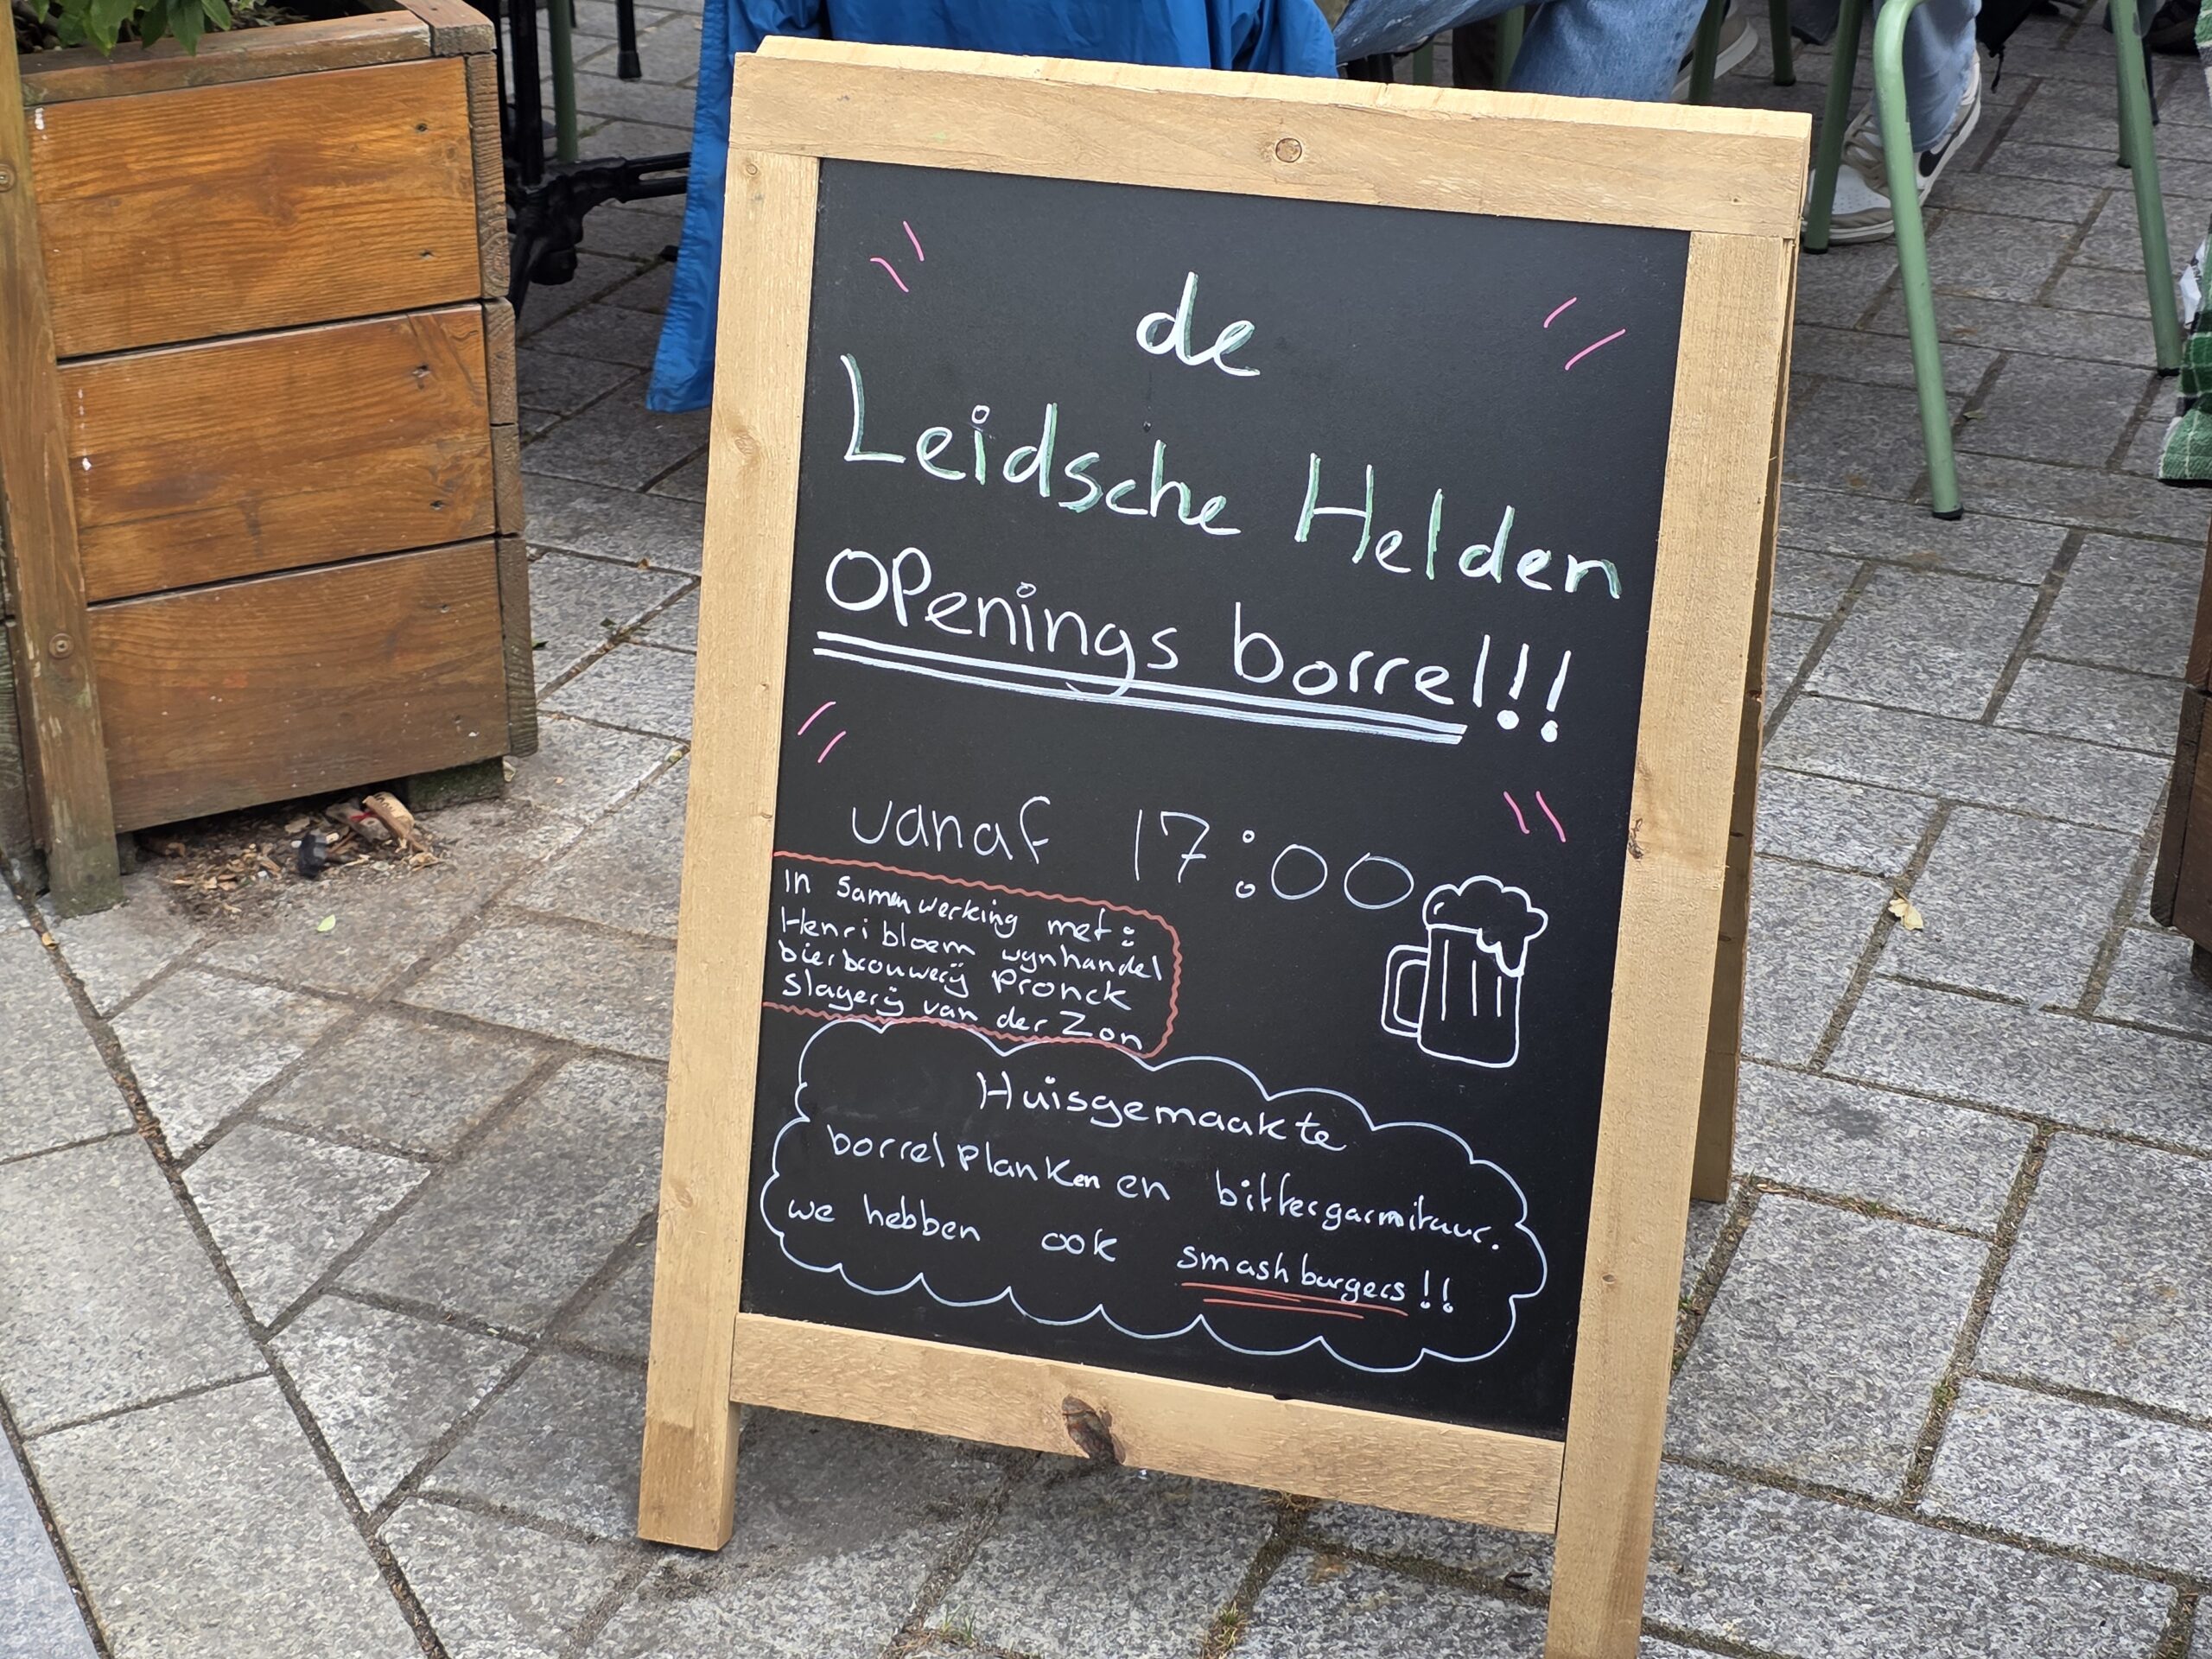 de
Leidsche Helden
Openings borrel!!
vanaf 17:00
in samenwerking met:
Henri bloem wijnhandel
bierbrouwerij Pronck
slagerij van der Zon
Huisgemaakte
borrelplanken en bittergarnituur.
we hebben ook smashburgers!!